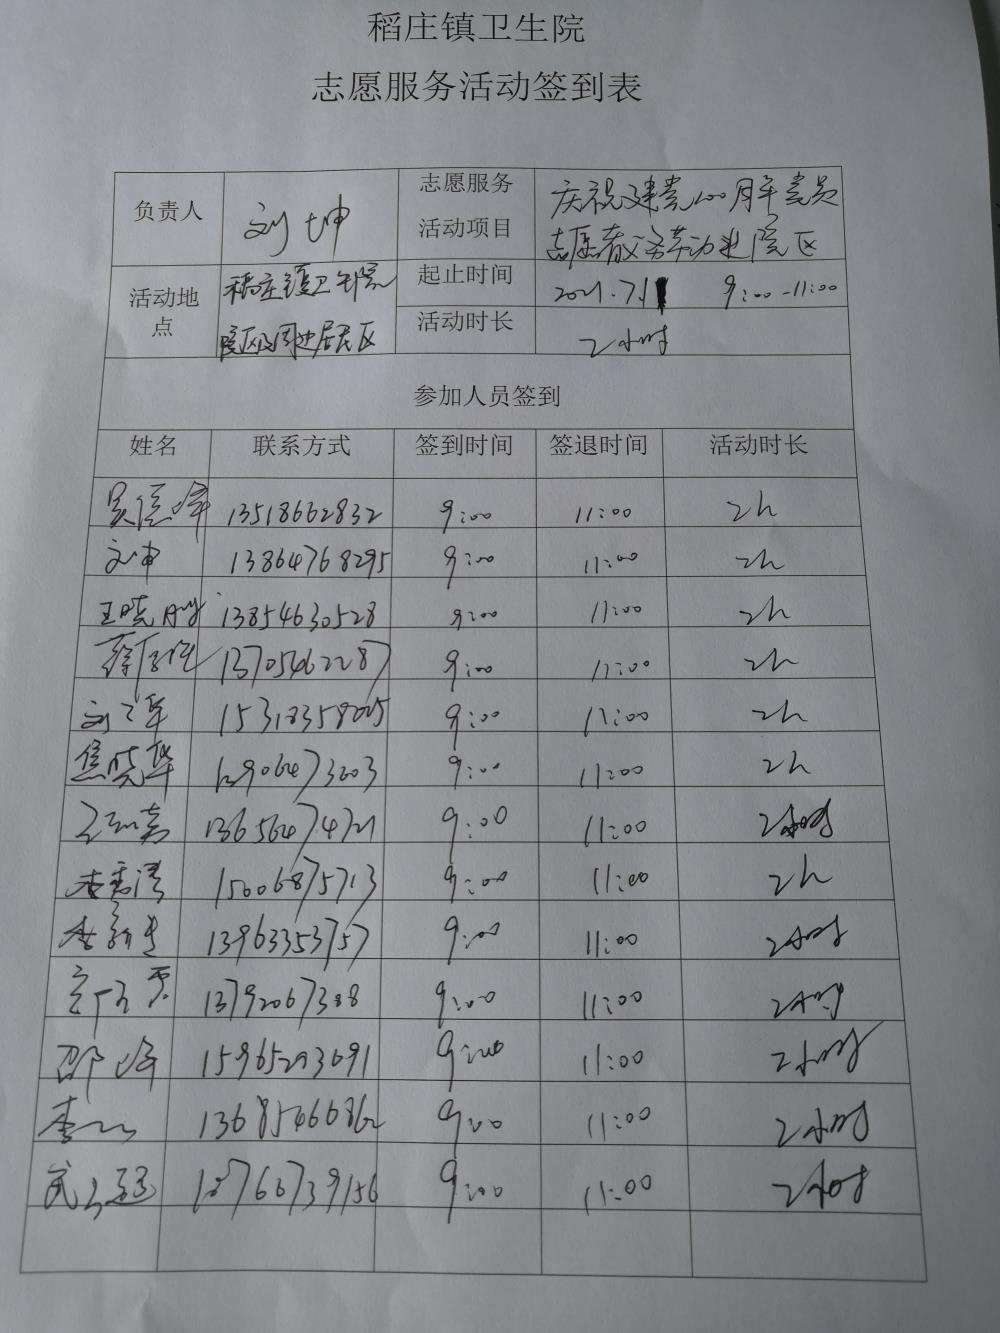 稻庄镇卫生院
志愿服务活动签到表
负责人 刘坤 志愿服务活动项目 庆祝建党100周年党员
志愿者义务劳动进院区
活动地点 稻庄镇卫生院
院区及周边居民区
起止时间 2021.7.1 9:00-11:00
活动时长 2小时
参加人员签到
姓名 联系方式 签到时间 签退时间 活动时长
13518662832 9:00 11:00 2h
刘坤 13864768295 9:00 11:00 2h
王晓 13854630528 9:00 11:00 2h
13705462287 9:00 11:00 2h
刘 15318358025 9:00 11:00 2h
焦晓华 9:00 11:00 2h
13656474721 9:00 11:00 2小时
李秀清 15006875713 9:00 11:00 2h
李新 13963353757 9:00 11:00 2小时
13792067388 9:00 11:00 2小时
邵峰 15965293691 9:00 11:00 2小时
李 13685466862 9:00 11:00 2小时
武 18766739156 9:00 11:00 2小时